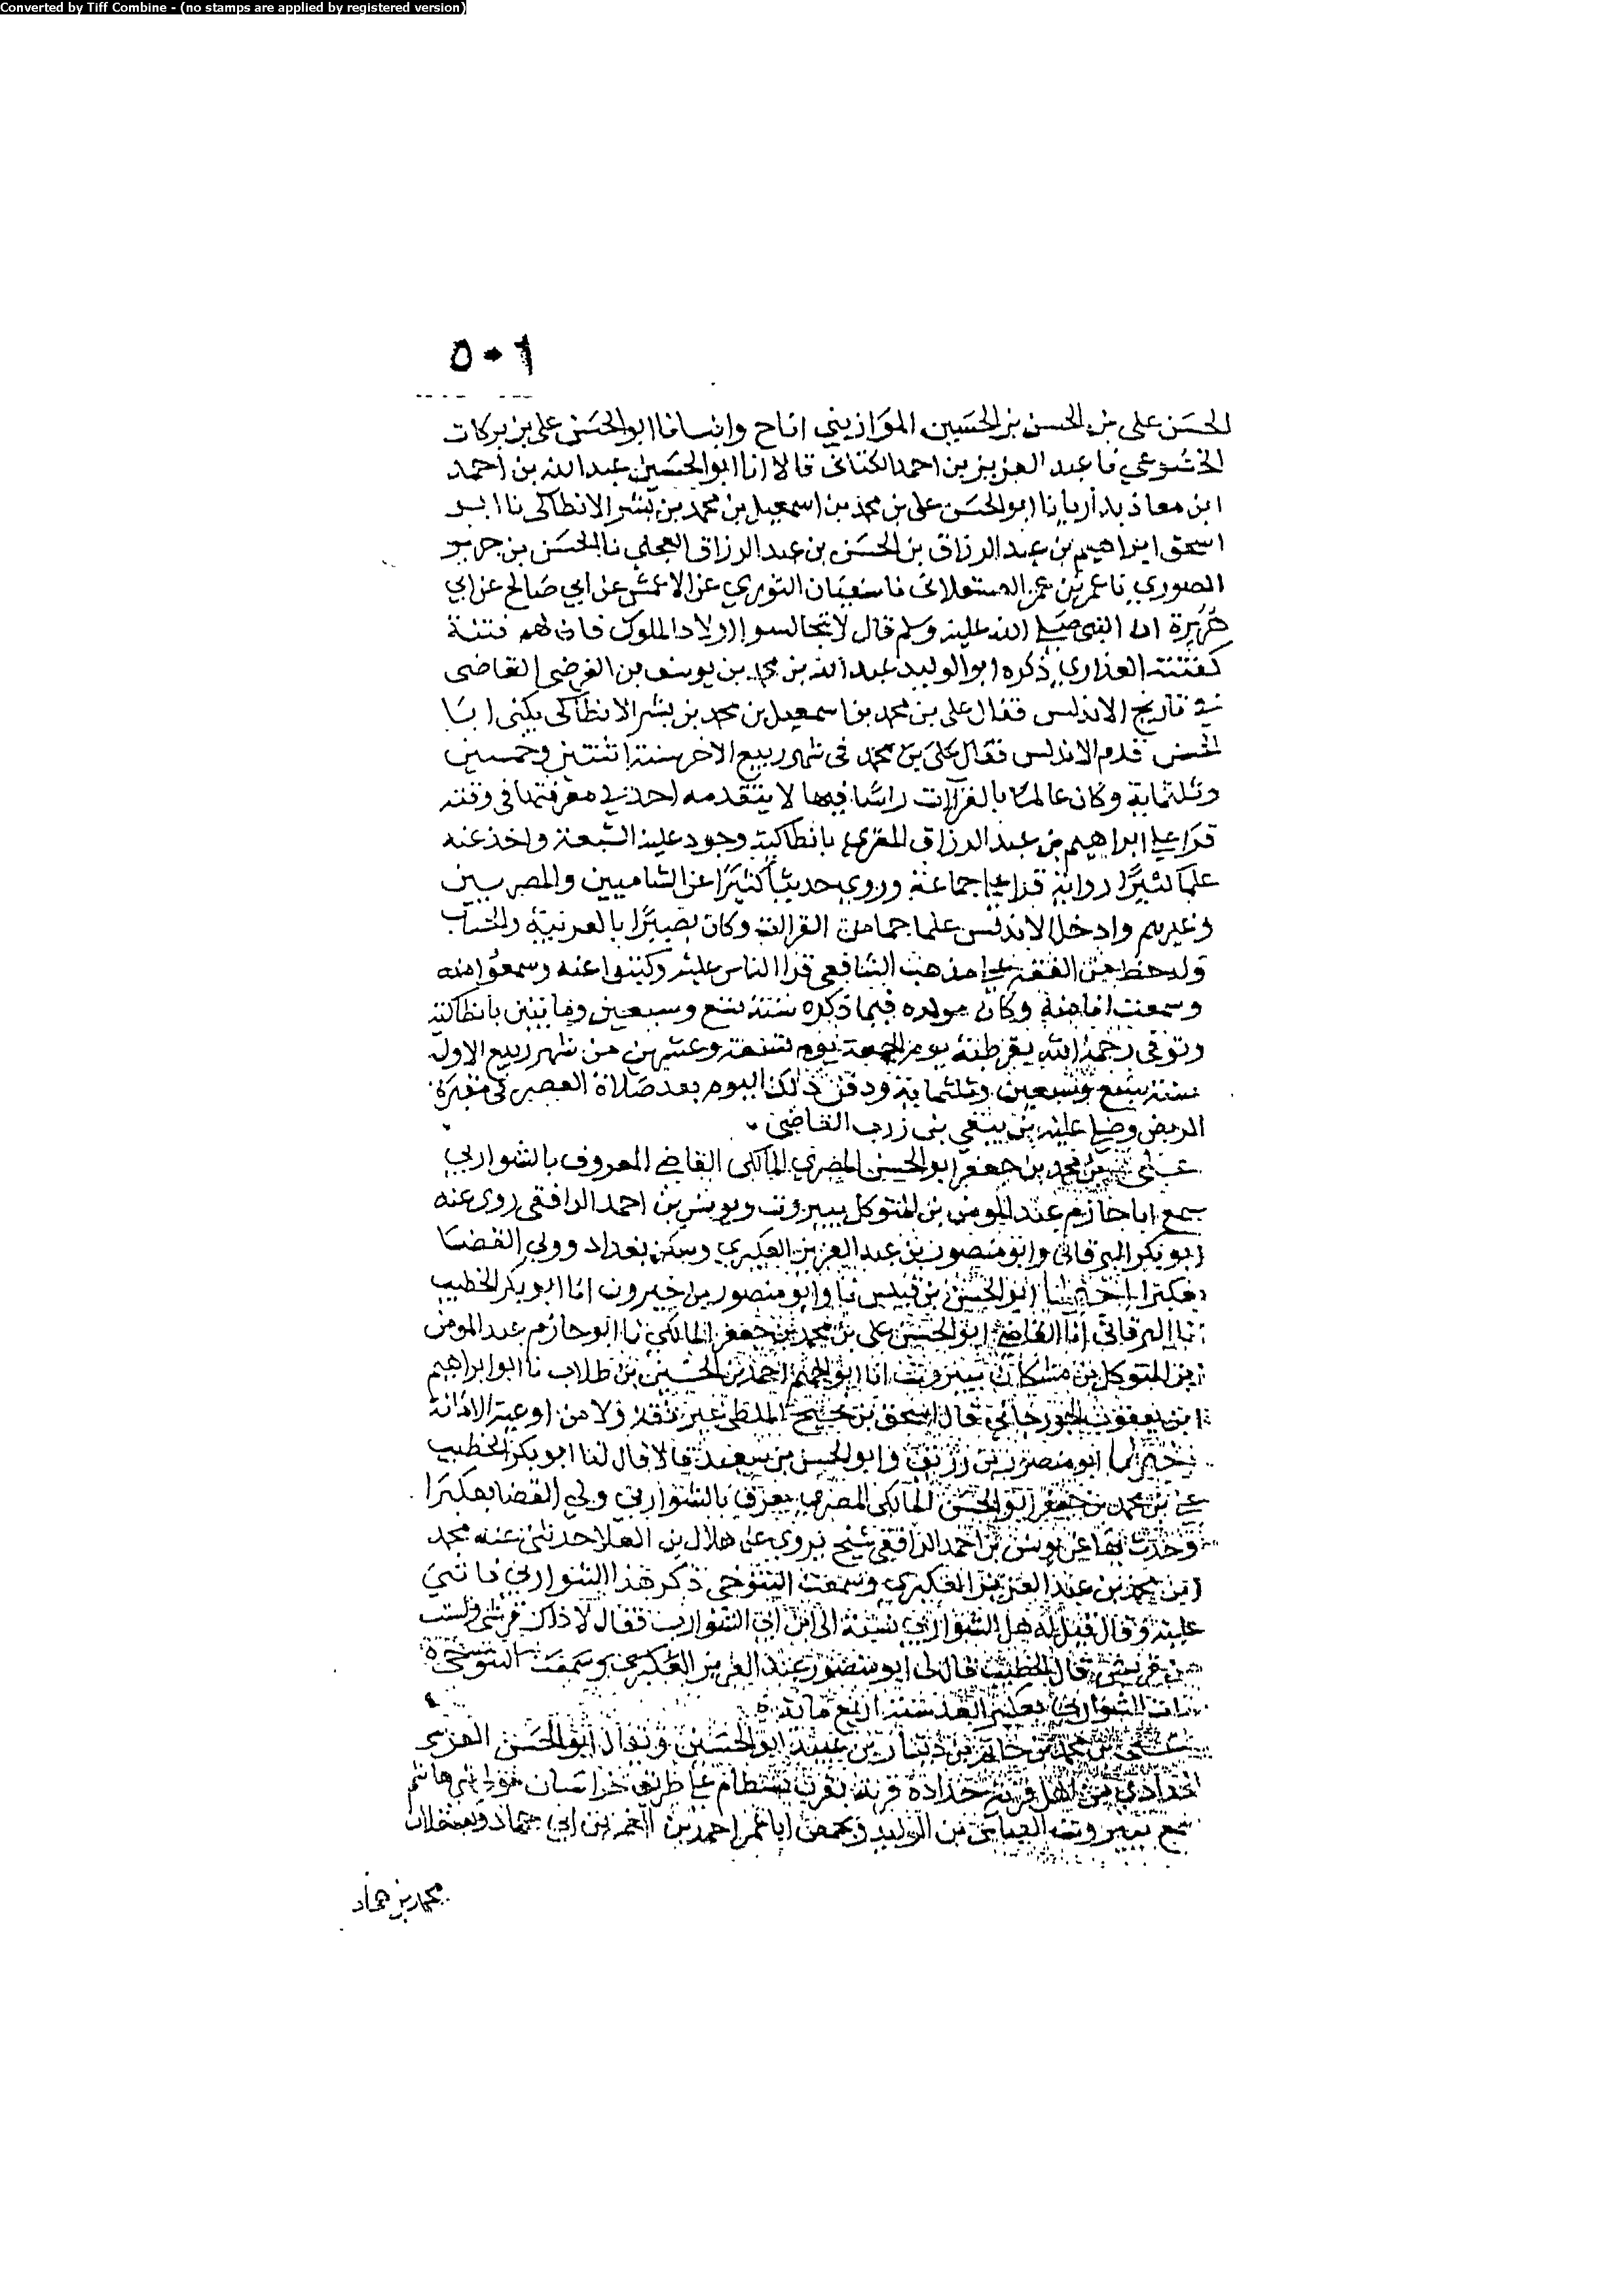 Converted by Tiff Combine - (no stamps are applied by registered version)
٥٠٦
الحسن على بن الحسن بن الحسين الموازيني انا ح وانبانا ابو الحسن على بن بركات
الخشوعي نا عبد العزيز بن احمد الكتانى قالا انا ابو الحسين عبد الله بن احمد
ابن معاذ بداريا نا ابو الحسن على بن محمد بن اسمعيل بن محمد بن بشر الانطاكى نا ابو
اسحق ابراهيم بن عبد الرزاق بن الحسن بن عبد الرزاق العجلي نا الحسن بن جرير
الصوري نا عمر بن عمر العسقلانى نا سفيان الثوري عن الاعمش عن ابي صالح عن ابي
هريرة ان النبي صلى الله عليه وسلم قال لا تجالسوا اولاد الملوك فان لهم فتنة
كفتنة العذارى ذكره ابو الوليد عبد الله بن محمد بن يوسف بن الفرضي القاضى
في تاريخ الاندلس فقال على بن محمد بن اسمعيل بن محمد بن بشر الانطاكى يكنى ابا
الحسن قدم الاندلس فقال على بن محمد فى شهر ربيع الاخر سنة اثنتين وخمسين
وثلثماية وكان عالما بالقراات راسا فيها لا يتقدمه احد في معرفتها فى وقته
قرا على ابراهيم بن عبد الرزاق المقري بانطاكية وجود عليه السبعة واخذ عنه
علما كثيرا رواية قرا على جماعة وروى حديثا كثيرا عن الشاميين والمصريين
وغيرهم وادخل الاندلس علما جما من القراات وكان بصيرا بالعربية والحساب
وله حظ من الفقه على مذهب الشافعي قرا الناس عليه وكتبوا عنه وسمعوا منه
وسمعت انا منه وكان مولده فيما ذكره سنة تسع وتسعين ومايتين بانطاكية
وتوفى رحمه الله بقرطبة يوم الجمعة يوم تسعة وعشرين من شهر ربيع الاول
سنة سبع وسبعين وثلثماية ودفن ذلك اليوم بعد صلاة العصر فى مقبرة
الربض وصلى عليه بن يبقي بن زرب القاضي
على بن محمد بن جعفر ابو الحسن المصري المالكى القاضي المعروف بالشواربي
سمع ابا حازم عبد المومن بن المتوكل ببيروت ويونس بن احمد الرافقى روى عنه
ابو بكر البرقانى وابو منصور بن عبد العزيز العكبري وسكن بغداد وولي القضا
بعكبرا اخبرنا ابو الحسن بن قبيس نا وابو منصور بن خيرون انا ابو بكر الخطيب
انا البرقانى انا القاضي ابو الحسن على بن محمد بن جعفر المالكي نا ابو حازم عبد المومن
ابن المتوكل بن مشكان ببيروت انا ابو الجهم احمد بن الحسين بن طلاب نا ابو ابراهيم
ابن يعقوب الجوزجاني قال اسحق بن نجيح الملطى غير ثقة ولا من اوعية الامانة
اخبرنا ابو منصور بن زريق وابو الحسن بن سعيد قالا قال لنا ابو بكر الخطيب
على بن محمد بن جعفر ابو الحسن المالكى المصري يعرف بالشواربي ولي القضا بعكبرا
وحدث بها عن يونس بن احمد الرافقى شيخ يروى عن هلال بن العلا حدثنى عنه محمد
ابن محمد بن عبد العزيز العكبري وسمعت التنوخي ذكر هذا الشواربي فاثنى
عليه وقال قيل له هل الشواربي نسبة الى ابن ابي الشوارب فقال لا ذاك قرشى ولست
من قريش قال الخطيب قال لى ابو منصور عبد العزيز العكبري وسمعت التنوخي
مات الشواربي بعكبرا بعد سنة اربع ماية
على بن محمد بن حاتم بن دينار بن عبيد ابو الحسين ويقال ابو الحسن
الحدادي من اهل قرية حدادة قرية بقرب بسطام على طريق خراسان مولى بني هاشم
سمع ببيروت العباس بن الوليد وبحمص ابا عمر احمد بن المعمر بن ابي حماد وبعسقلان
محمد بن حماد